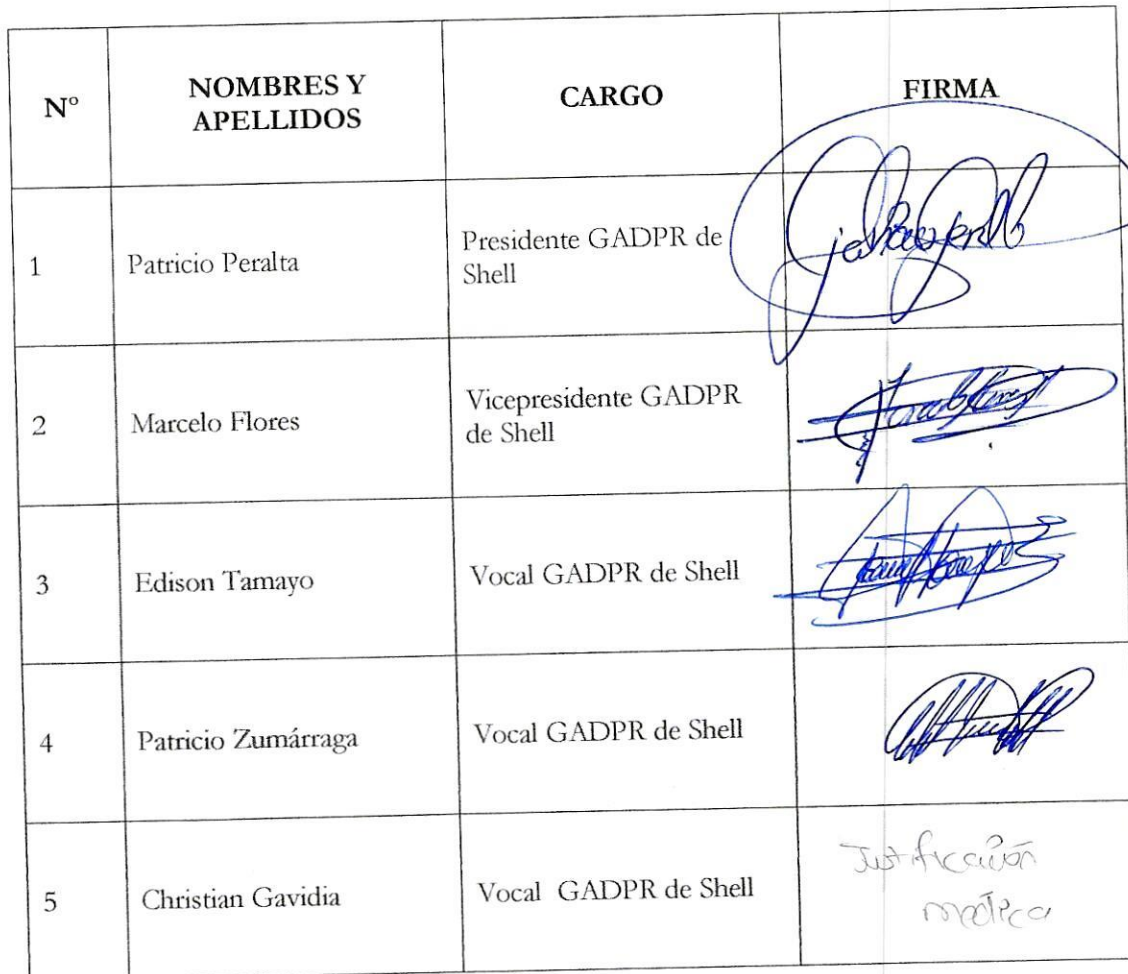 N°
NOMBRES Y
APELLIDOS
CARGO
FIRMA
1
Patricio Peralta
Presidente GADPR de
Shell
2
Marcelo Flores
Vicepresidente GADPR
de Shell
3
Edison Tamayo
Vocal GADPR de Shell
4
Patricio Zumárraga
Vocal GADPR de Shell
5
Christian Gavidia
Vocal GADPR de Shell
Justificación
medica